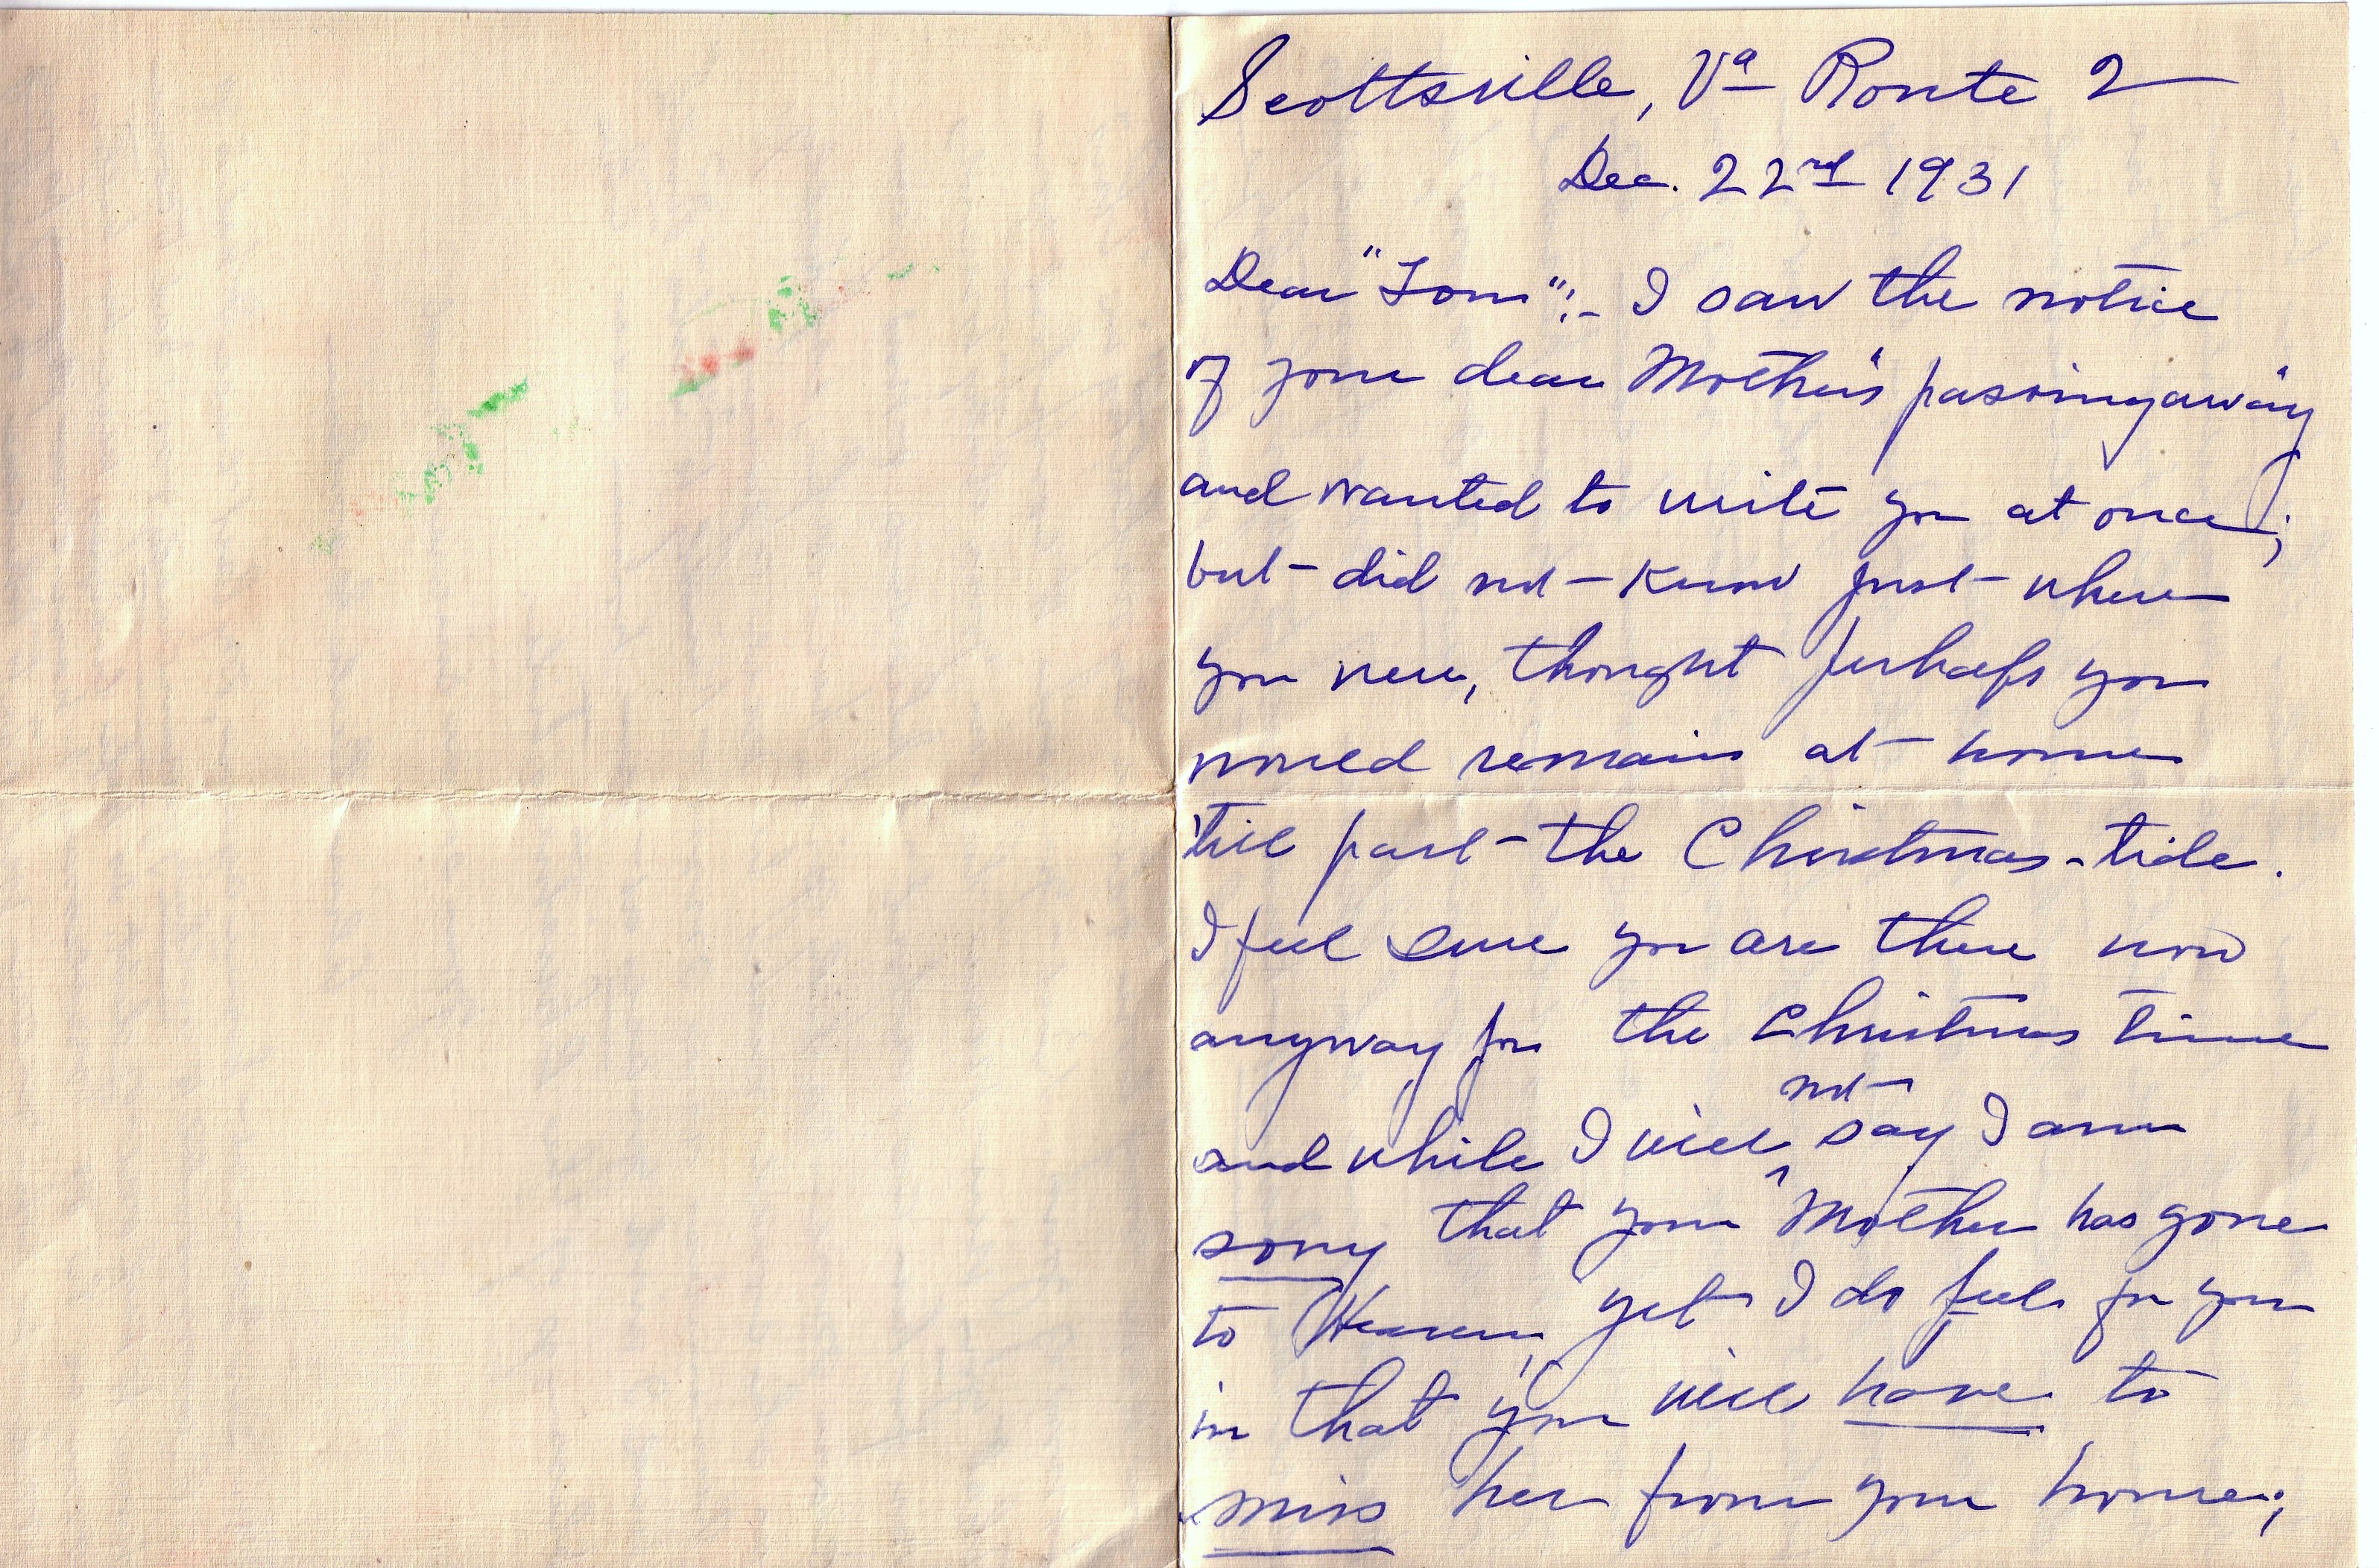 Scottsville, Va Route 2
Dec. 22nd 1931
Dear "Tom":- I saw the notice
of your dear Mother's "passing away"
and wanted to write you at once;
but did not know just where
you were, thought perhaps you
would remain at home
'till past the Christmas-tide.
I feel sure you are there now
anyway for the Christmas time
not
and while I will ^ say I am
sorry that your Mother has gone
to Heaven, yet I do feel for you
in that you will have to
miss her from your home;